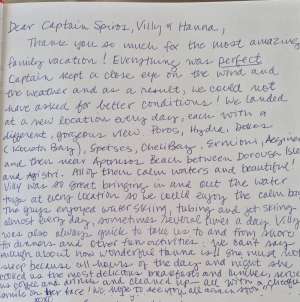 Dear Captain Spiros, Villy & Hanna,
Thank you so much for the most amazing
family vacation! Everything was perfect.
Captain kept a close eye on the wind and
the weather and as a result, we could not
have asked for better conditions! We landed
at a new location every day, each with a
different, gorgeous view. Poros, Hydra, Dokos
Bay), Spetses, Cheli Bay, Ermioni, Aegina
and then near Aponisos Beach between Dorousa Isle
and Agistri. All of them calm waters and beautiful!
Villy was so great bringing in and out the water
toys at every location so we could enjoy the calm bay
The guys enjoyed water skiing, tubing and jet skiing
almost every day, sometimes several times a day. Villy
was also always quick to take us to and from shore
to dinners and other fun activities. We can't say
enough about how wonderful Hanna is! She must not
sleep because all hours of the day and night she
the most delicious breakfasts and lunches, serve
us and dinners and cleaned up - all with a
smile on her face! We hope to see you all again soon!